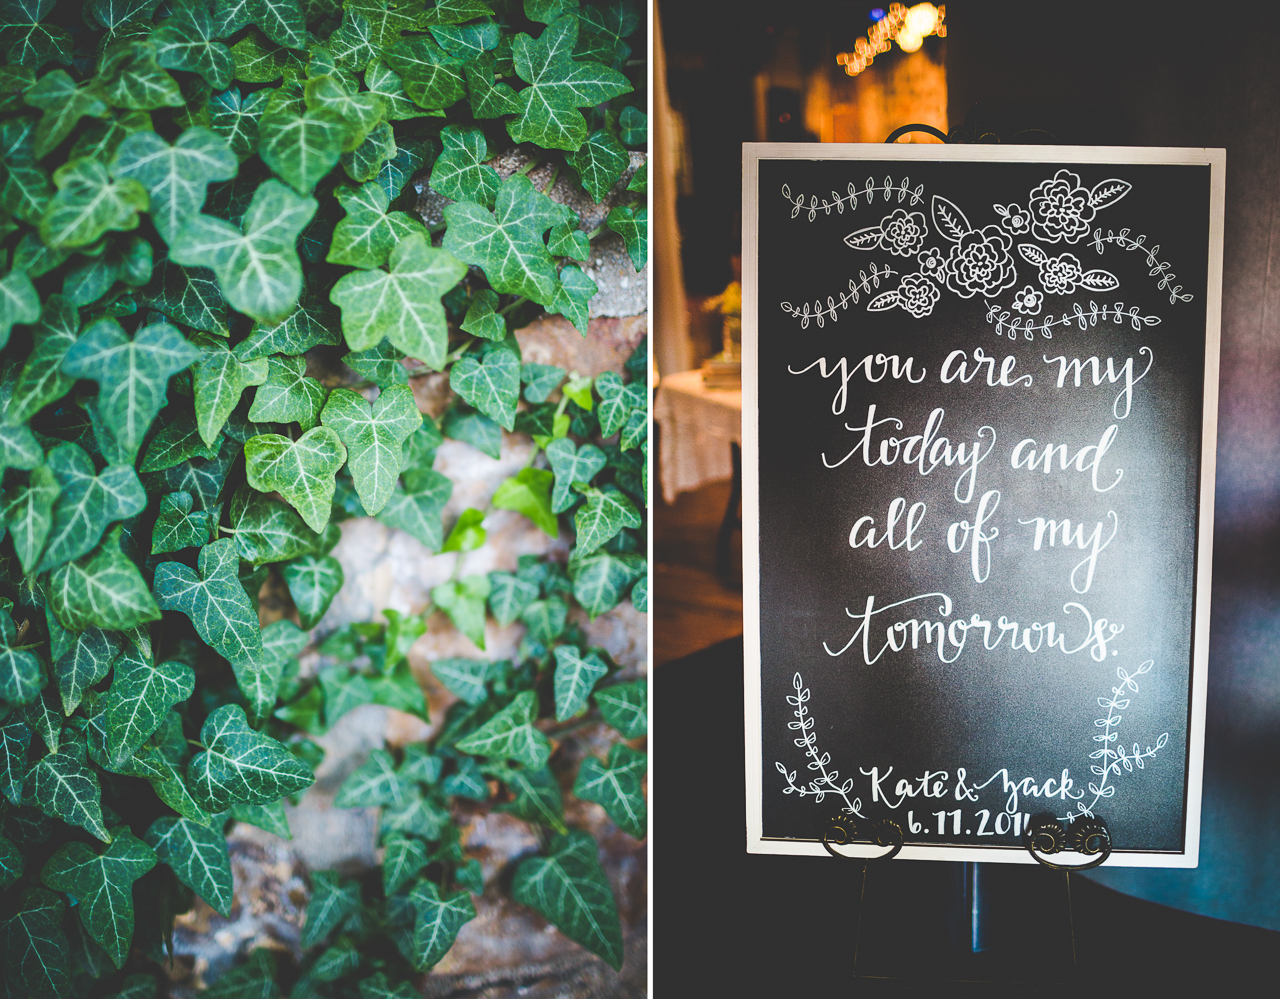 you are my
today and
all of my
tomorrows.
Kate & Zack